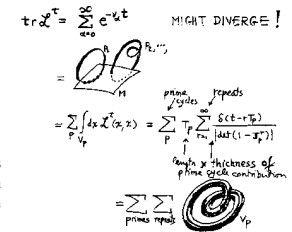 tr 𝓛^t = Σ_{α=0}^{∞} e^{-ν_α t} MIGHT DIVERGE!
P₁ P₂, ...,
=
M
prime cycles repeats
= Σ_p ∫_{V_p} dx 𝓛^t(x,x) = Σ_p T_p Σ_{r=1}^{∞} δ(t-rT_p) / |det(1-J_p^r)|
length x thickness of
prime cycle contribution
= Σ Σ V_p
primes repeats